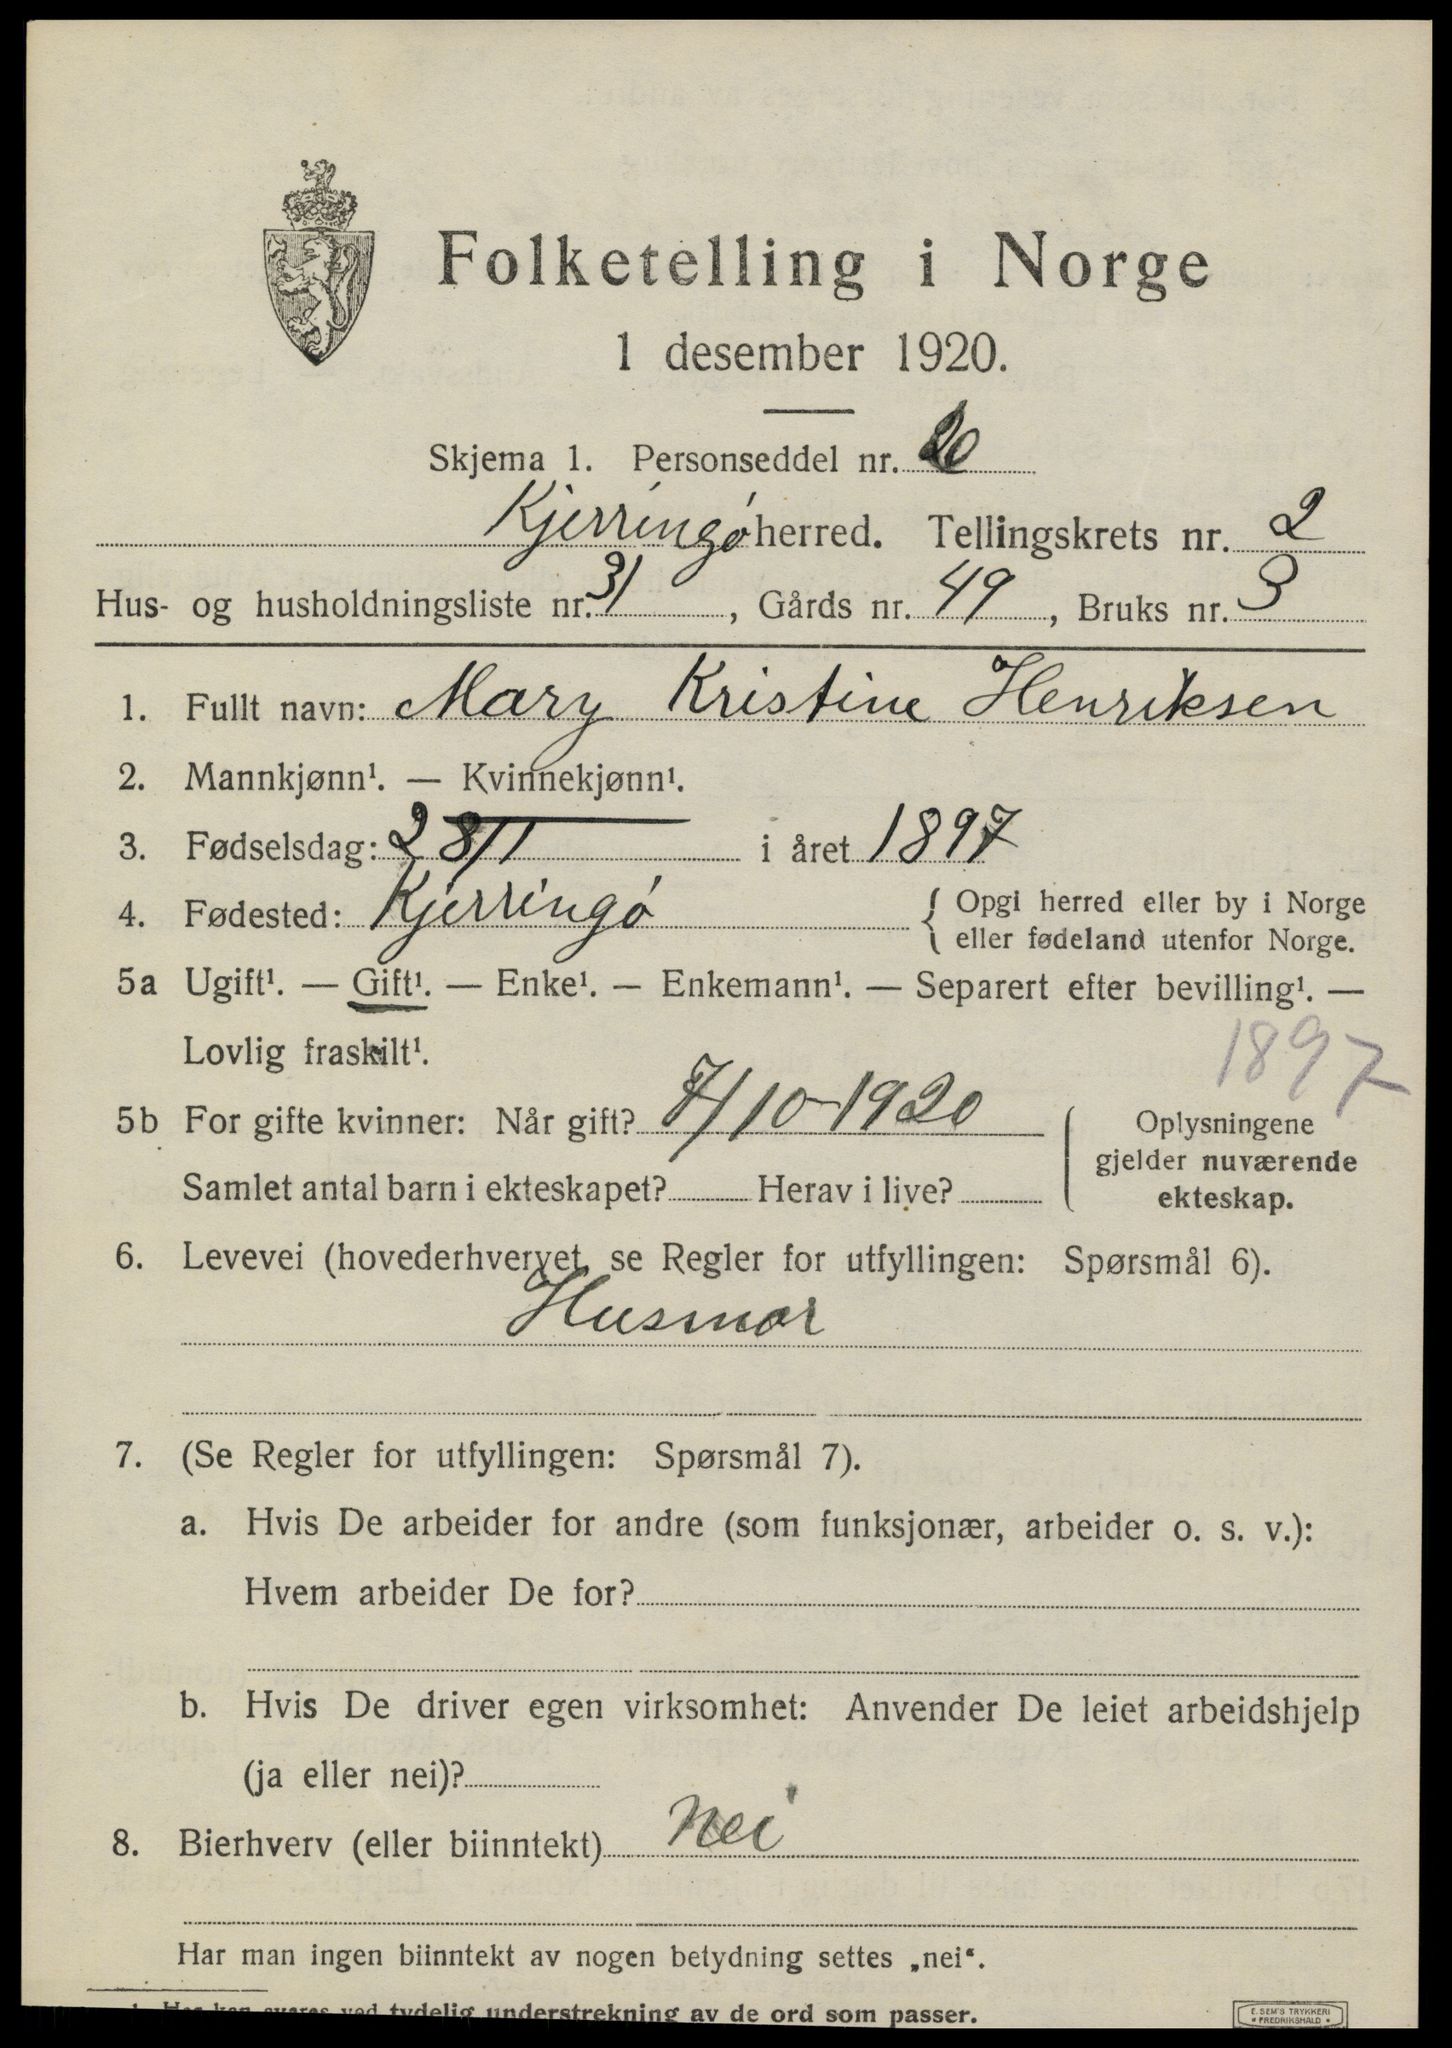 Folketelling i Norge
1 desember 1920.
Skjema 1. Personseddel nr.
Kjerringø herred. Tellingskrets nr. 2
Hus- og husholdningsliste nr. 31, Gårds nr. 49, Bruks nr. 3
1. Fullt navn: Mary Kristine Henriksen
2. Mannkjønn¹. — Kvinnekjønn¹.
3. Fødselsdag: 28/1 i året 1897
4. Fødested: Kjerringø { Opgi herred eller by i Norge
eller fødeland utenfor Norge.
5a Ugift¹. — Gift¹. — Enke¹. — Enkemann¹. — Separert efter bevilling¹. —
Lovlig fraskilt¹.
1897
5b For gifte kvinner: Når gift? 7/10-1920
Samlet antal barn i ekteskapet? Herav i live?
Oplysningene
gjelder nuværende
ekteskap.
6. Levevei (hovederhvervet, se Regler for utfyllingen: Spørsmål 6).
Husmor
7. (Se Regler for utfyllingen: Spørsmål 7).
a. Hvis De arbeider for andre (som funksjonær, arbeider o. s. v.):
Hvem arbeider De for?
b. Hvis De driver egen virksomhet: Anvender De leiet arbeidshjelp
(ja eller nei)?
8. Bierhverv (eller biinntekt) Nei
Har man ingen biinntekt av nogen betydning settes „nei“.
¹ Her kan svares ved tydelig understrekning av de ord som passer.
E. SEM'S TRYKKERI
* FREDRIKSHALD *